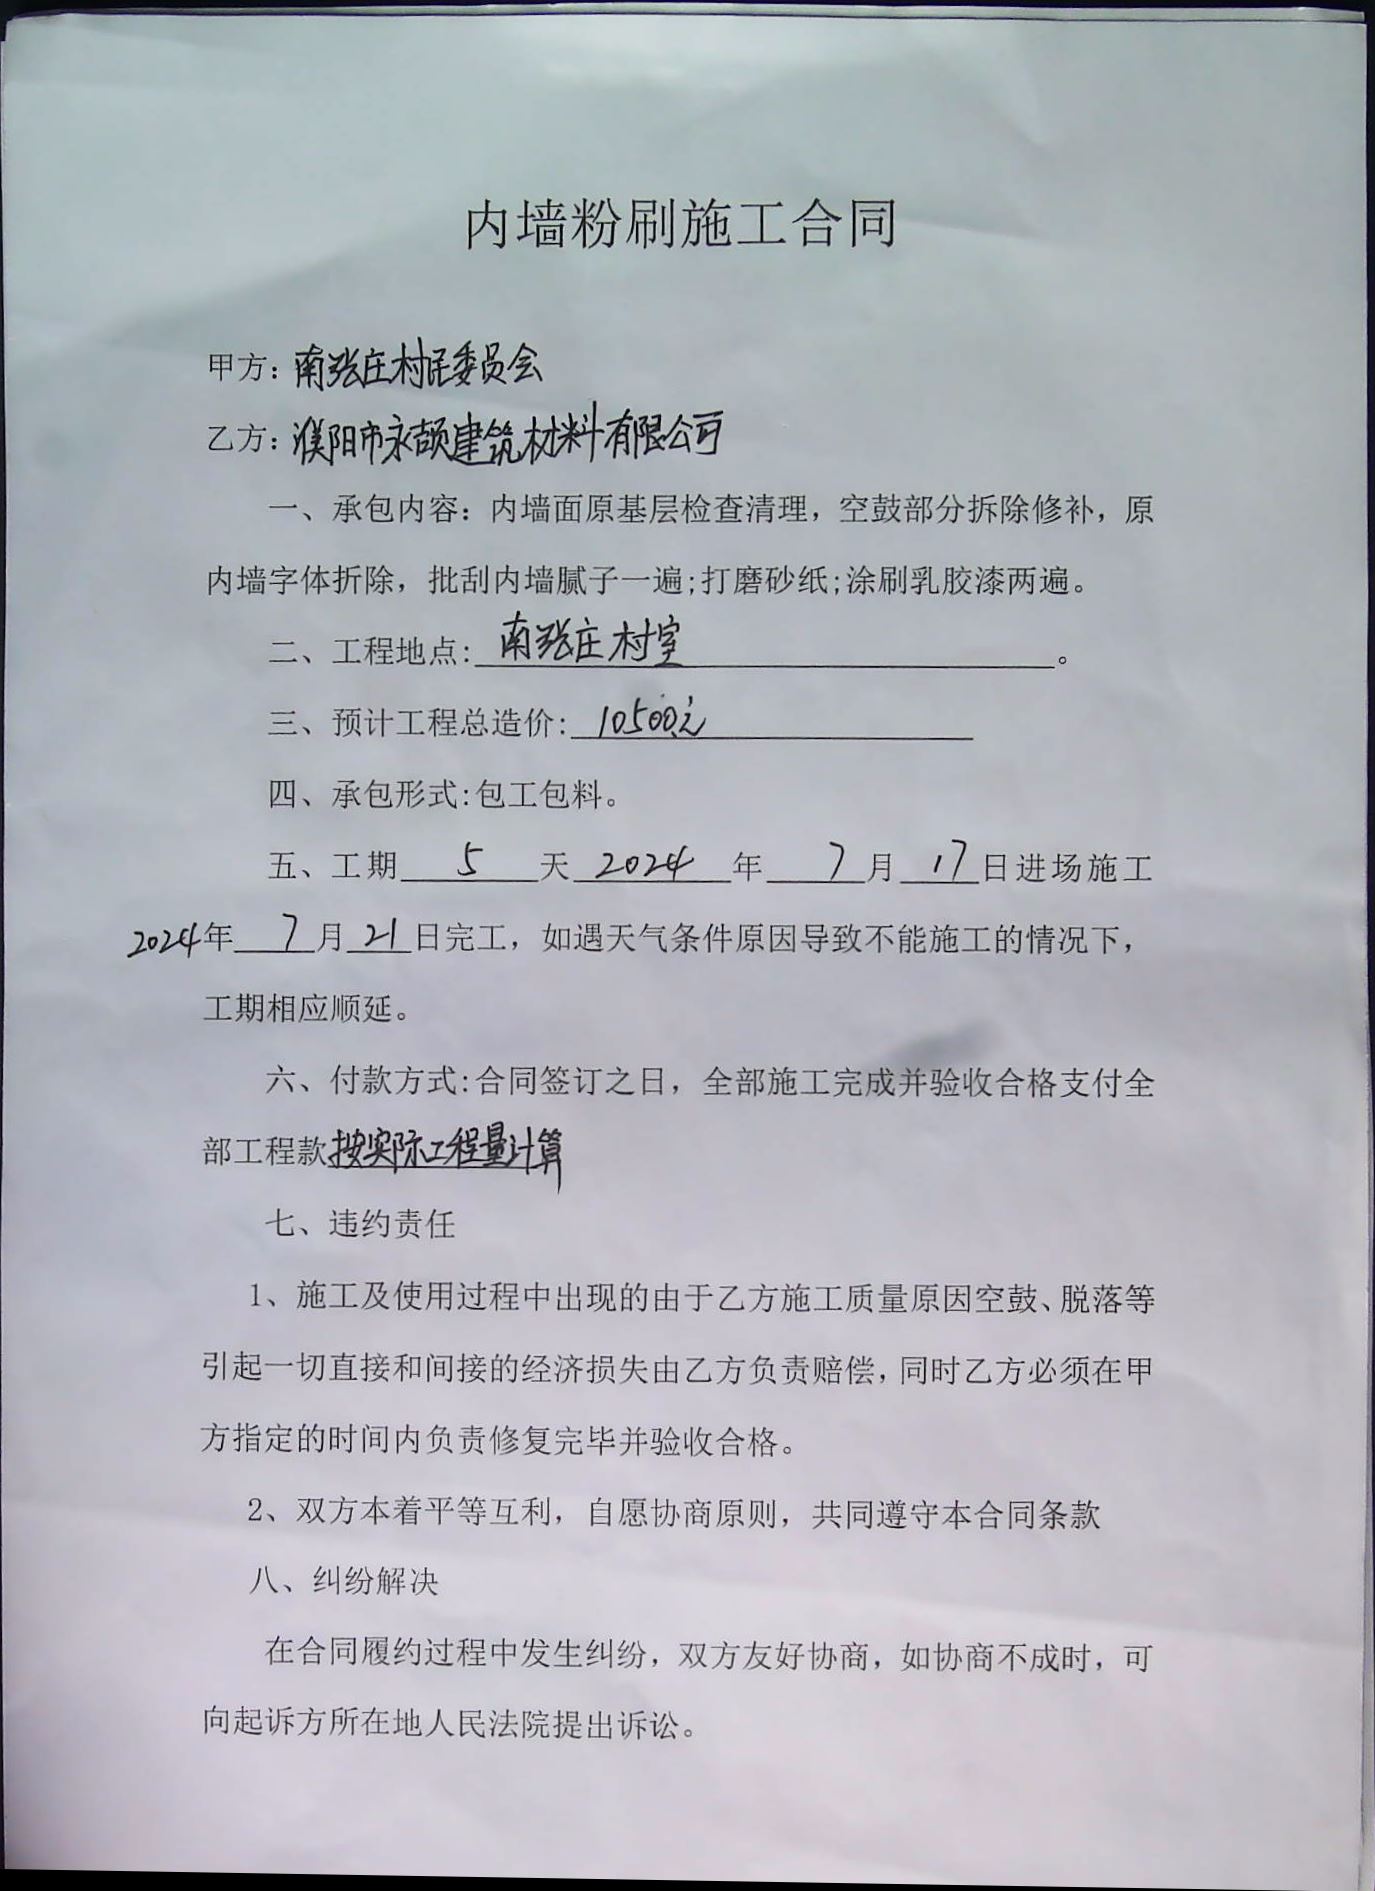 内墙粉刷施工合同
甲方：南张庄村民委员会
乙方：濮阳市永颉建筑材料有限公司
一、承包内容：内墙面原基层检查清理，空鼓部分拆除修补，原
内墙字体折除，批刮内墙腻子一遍;打磨砂纸;涂刷乳胶漆两遍。
二、工程地点:南张庄村室。
三、预计工程总造价:10500元
四、承包形式:包工包料。
五、工期 5 天 2024 年 7 月 17 日进场施工
2024年 7 月 21 日完工，如遇天气条件原因导致不能施工的情况下，
工期相应顺延。
六、付款方式:合同签订之日，全部施工完成并验收合格支付全
部工程款按实际工程量计算
七、违约责任
1、施工及使用过程中出现的由于乙方施工质量原因空鼓、脱落等
引起一切直接和间接的经济损失由乙方负责赔偿，同时乙方必须在甲
方指定的时间内负责修复完毕并验收合格。
2、双方本着平等互利，自愿协商原则，共同遵守本合同条款
八、纠纷解决
在合同履约过程中发生纠纷，双方友好协商，如协商不成时，可
向起诉方所在地人民法院提出诉讼。